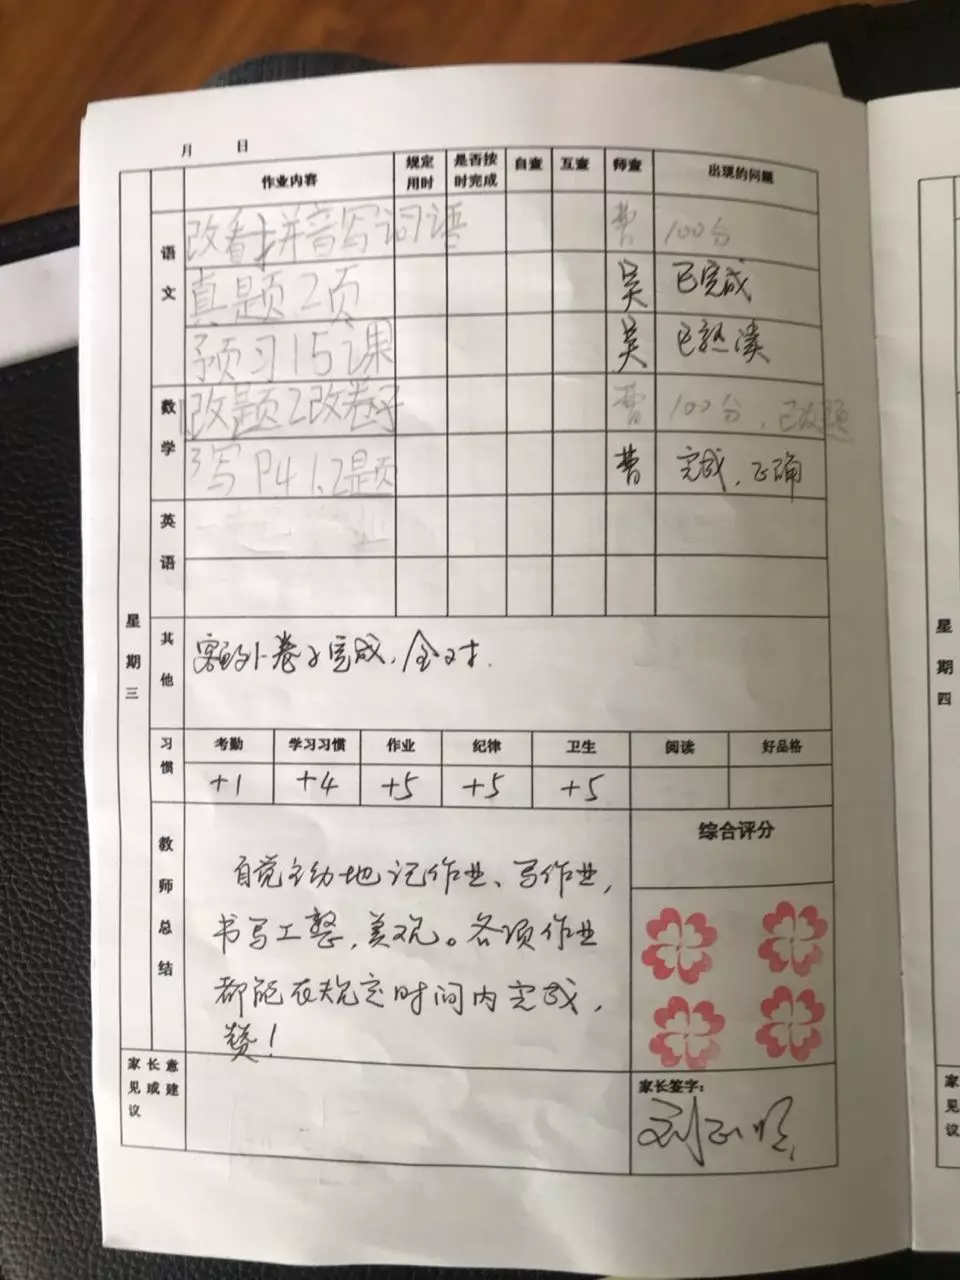 月 日
作业内容 规定用时 是否按时完成 自查 互查 师查 出现的问题
星期三
语文
改看拼音写词语 曹 100分
真题2页 吴 已完成
预习15课 吴 已熟读
数学
改题2改卷子 曹 100分，已改题
写P41.2题 曹 完成，正确
英语
其他
卷子完成，全对.
习惯
考勤 学习习惯 作业 纪律 卫生 阅读 好品格
+1 +4 +5 +5 +5
教师总结
综合评分
自觉主动地记作业、写作业，
书写工整，美观。各项作业
都能在规定时间内完成，
赞！
家长意见或建议
家长签字：
星期四
家见议